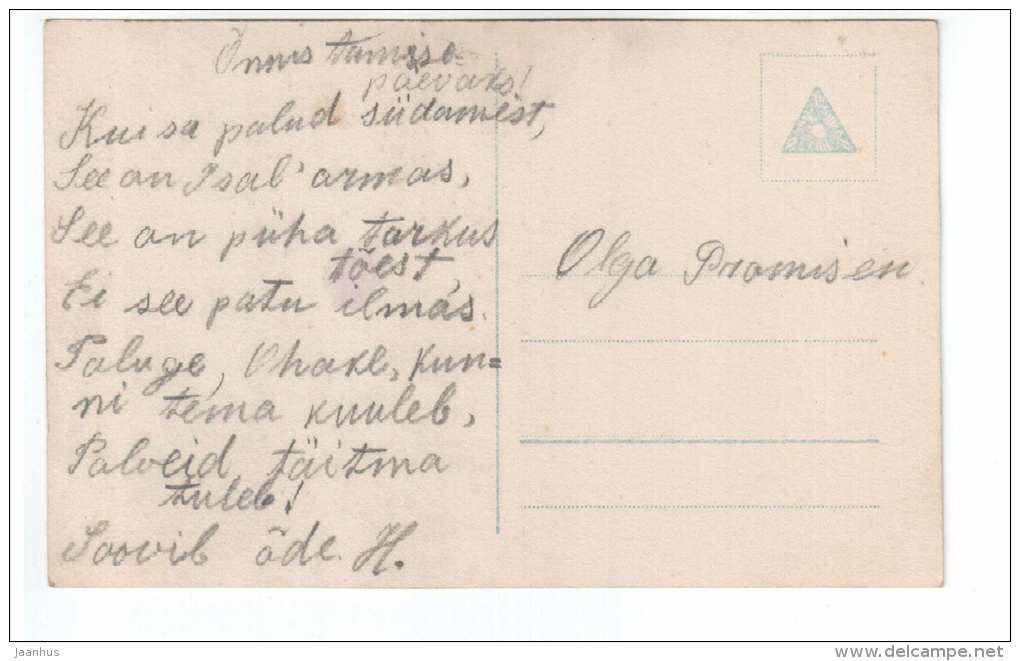 Õnnistamise
päevaks!
Kui sa palud südamest,
See on Isal' armas,
See on püha tarkus
tõest,
Ei see patu ilmas.
Paluge, Ohake, kun=
ni tema kuuleb,
Palveid täitma
tuleb!
Soovib õde H.
Olga Promisen
Jaanhus
delcampe.net